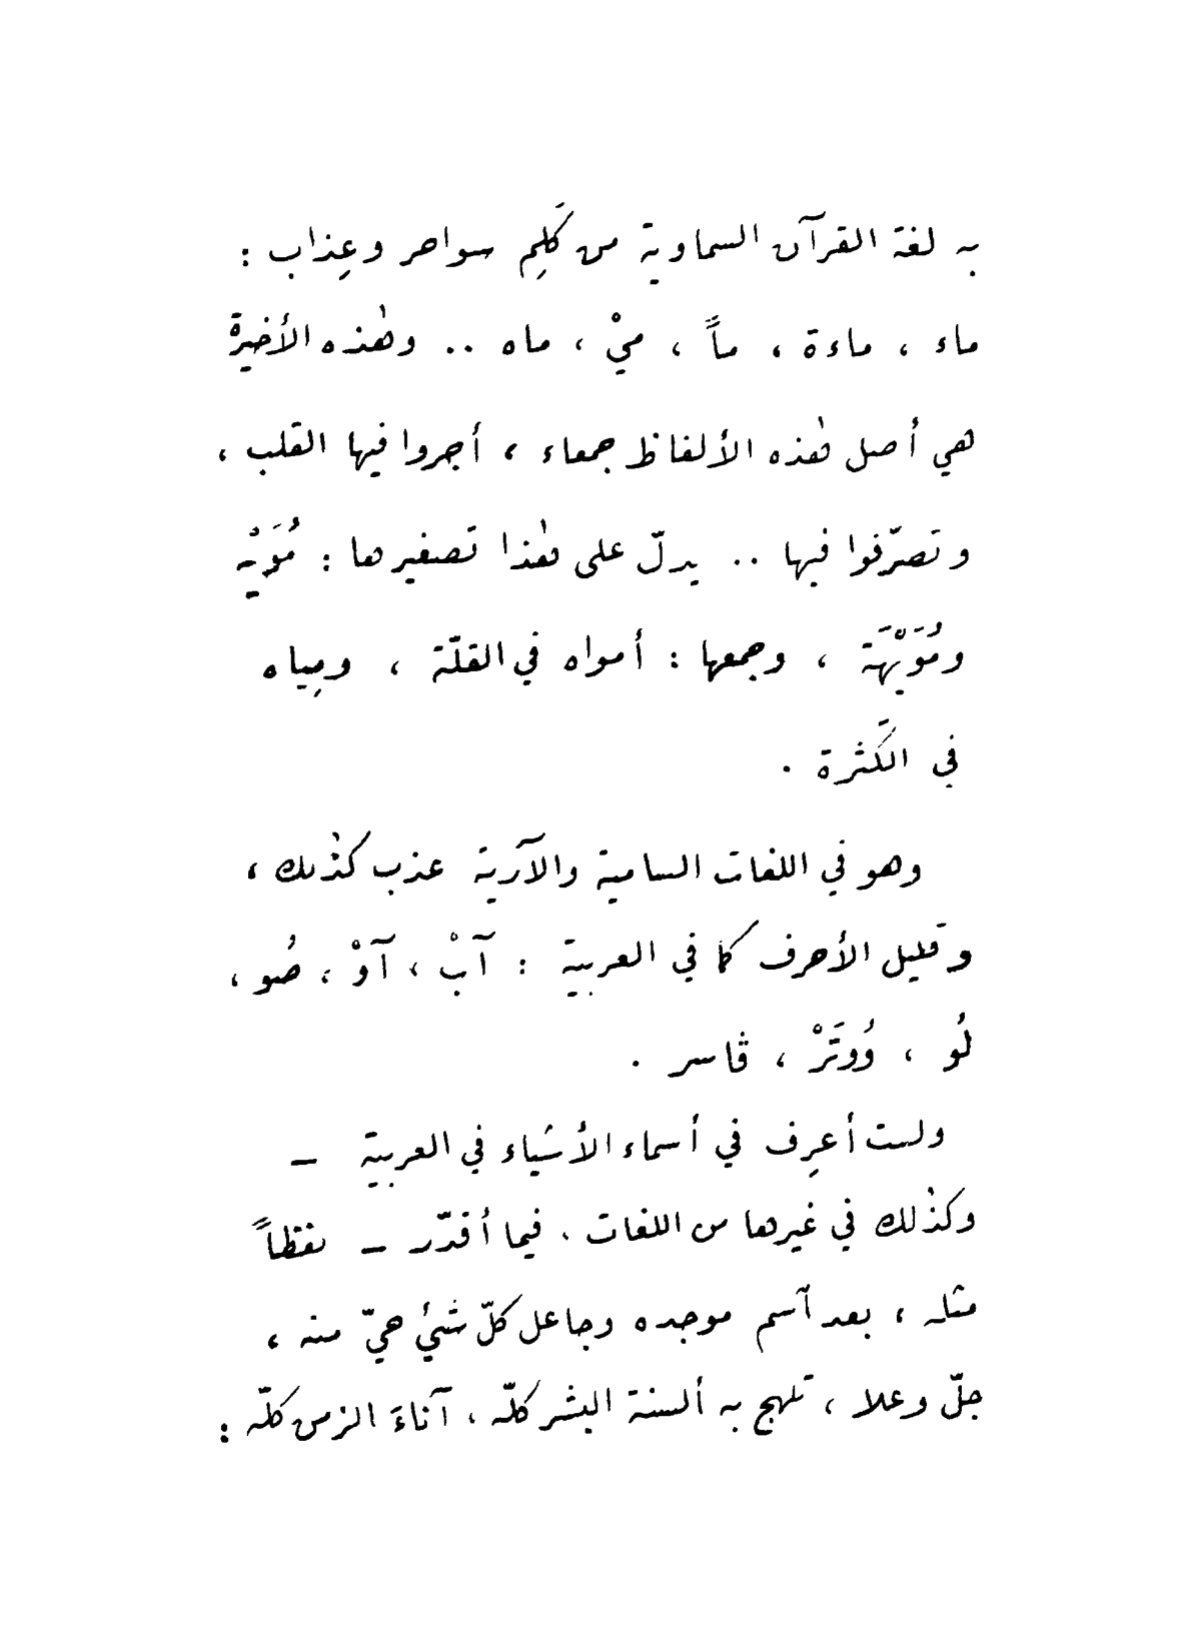 به لغة القرآن السماوية من كَلِم سواحر وعِذاب :
ماء ، ماءة ، ماً ، ميْ ، ماه .. وهٰذه الأخيرة
هي أصل هٰذه الألفاظ جمعاء ، أجروا فيها القلب ،
وتصرّفوا فيها .. يدلّ على هٰذا تصغيرها : مُوَيْه
ومُوَيْهَة ، وجمعها : أمواه في القلّة ، ومِياه
في الكَثرة .
وهو في اللغات السامية والآرية عذب كذٰلك ،
وقليل الأحرف كما في العربية : آبْ ، آوْ ، صُو ،
لُو ، وُوتَرْ ، ڤاسر .
ولست أعرِف في أسماء الأشياء في العربية –
وكذٰلك في غيرها من اللغات . فيما أقدّر – لفظاً
مثله ، بعد ٱسم موجده وجاعل كلّ شيْء حيّ منه ،
جلّ وعلا ، تلهج به ألسنة البشر كلّه ، آناءَ الزمن كلّه :